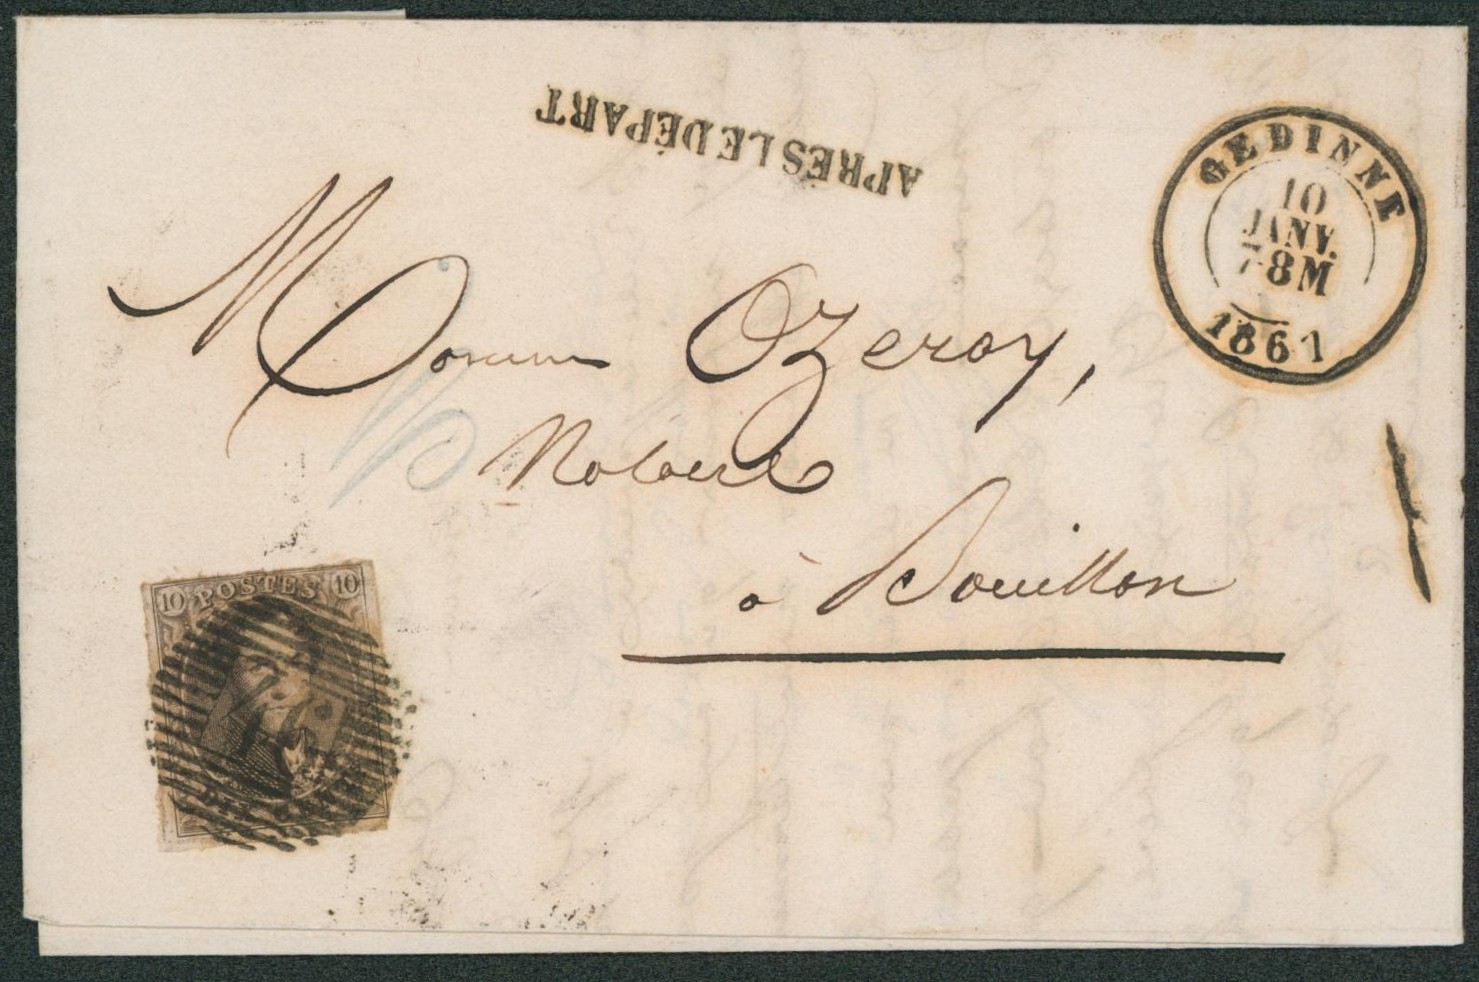 APRÈS LE DÉPART
GEDINNE
10
JANV.
7-8M
1861
Monsieur Ozeray,
Notaire
à Bouillon
10 POSTES 10